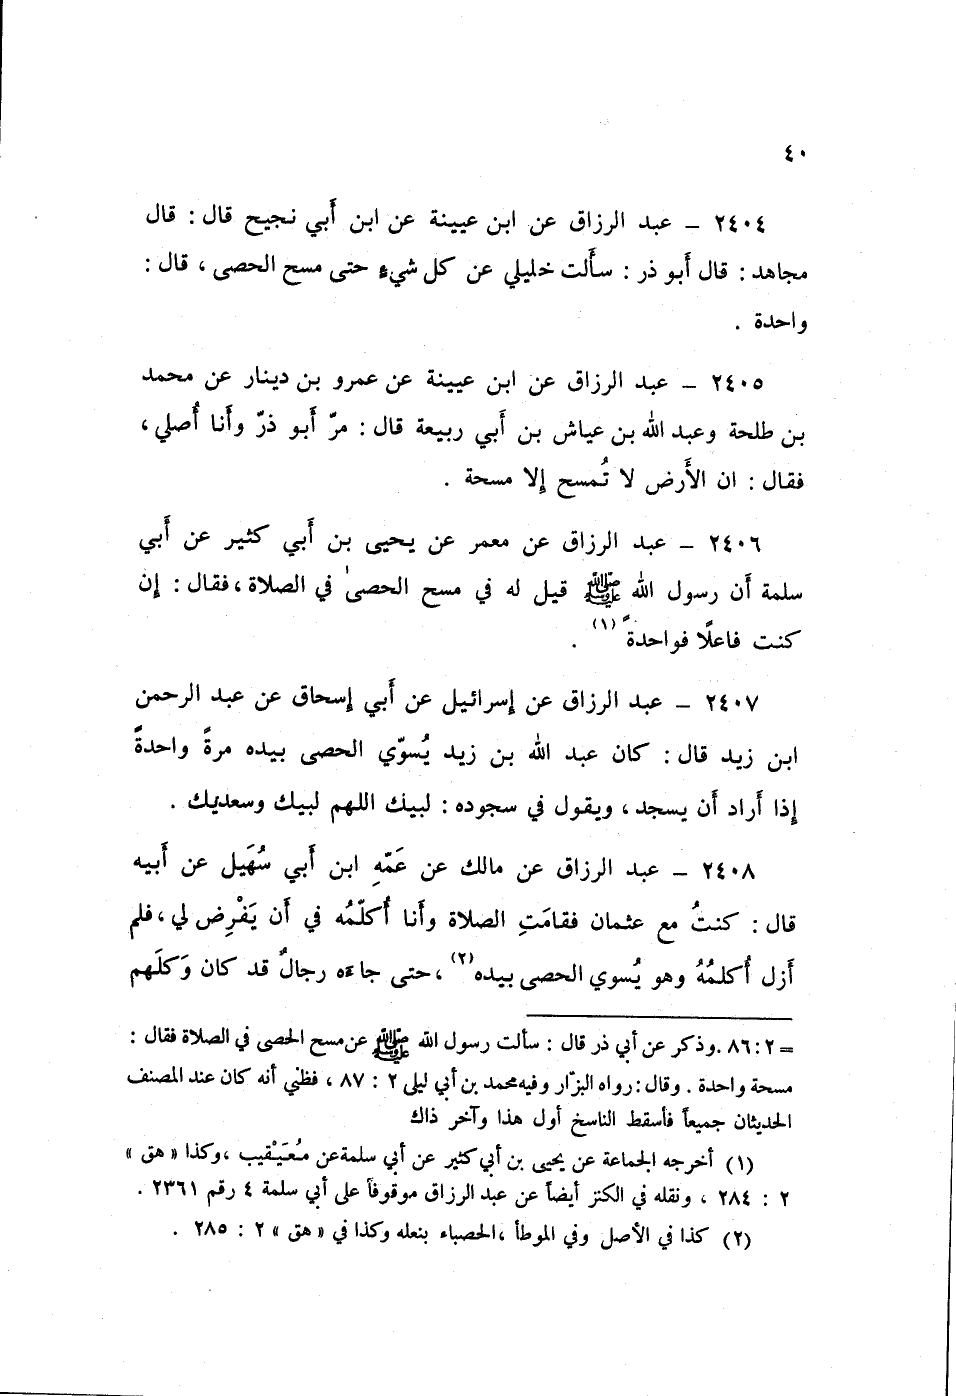 ٤٠
٢٤٠٤ – عبد الرزاق عن ابن عيينة عن ابن أَبي نجيح قال : قال
مجاهد : قال أَبو ذر : سأَلت خليلي عن كل شيءٍ حتى مسح الحصى ، قال :
واحدة .
٢٤٠٥ – عبد الرزاق عن ابن عيينة عن عمرو بن دينار عن محمد
بن طلحة وعبد الله بن عياش بن أَبي ربيعة قال : مرّ أَبو ذرّ وأَنا أُصلي ،
فقال : ان الأَرض لا تُمسح إلا مسحة .
٢٤٠٦ – عبد الرزاق عن معمر عن يحيى بن أَبي كثير عن أَبي
سلمة أَن رسول الله ﷺ قيل له في مسح الحصىٰ في الصلاة ، فقال : إن
كنت فاعلًا فواحدةً (١) .
٢٤٠٧ – عبد الرزاق عن إسرائيل عن أَبي إسحاق عن عبد الرحمن
ابن زيد قال : كان عبد الله بن زيد يُسوّي الحصى بيده مرةً واحدةً
إذا أَراد أَن يسجد ، ويقول في سجوده : لبيك اللهم لبيك وسعديك .
٢٤٠٨ – عبد الرزاق عن مالك عن عَمّهِ ابن أَبي سُهَيل عن أَبيه
قال : كنتُ مع عثمان فقامَتِ الصلاة وأَنا أُكلّمُه في أَن يَفْرِض لي ، فلم
أَزل أُكلمُهُ وهو يُسوي الحصى بيده (٢) ، حتى جاءَه رجالٌ قد كان وَكَلَهم
= ٢ : ٨٦ . وذكر عن أبي ذر قال : سألت رسول الله ﷺ عن مسح الحصى في الصلاة فقال :
مسحة واحدة . وقال : رواه البزّار وفيه محمد بن أبي ليلى ٢ : ٨٧ ، فظني أنه كان عند المصنف
الحديثان جميعاً فأسقط الناسخ أول هذا وآخر ذاك
(١) أخرجه الجماعة عن يحيى بن أبي كثير عن أبي سلمة عن مُعَيْقيب ، وكذا « هق »
٢ : ٢٨٤ ، ونقله في الكنز أيضاً عن عبد الرزاق موقوفاً على أبي سلمة ٤ رقم ٢٣٦١ .
(٢) كذا في الأصل وفي الموطأ ، الحصباء بنعله وكذا في « هق » ٢ : ٢٨٥ .